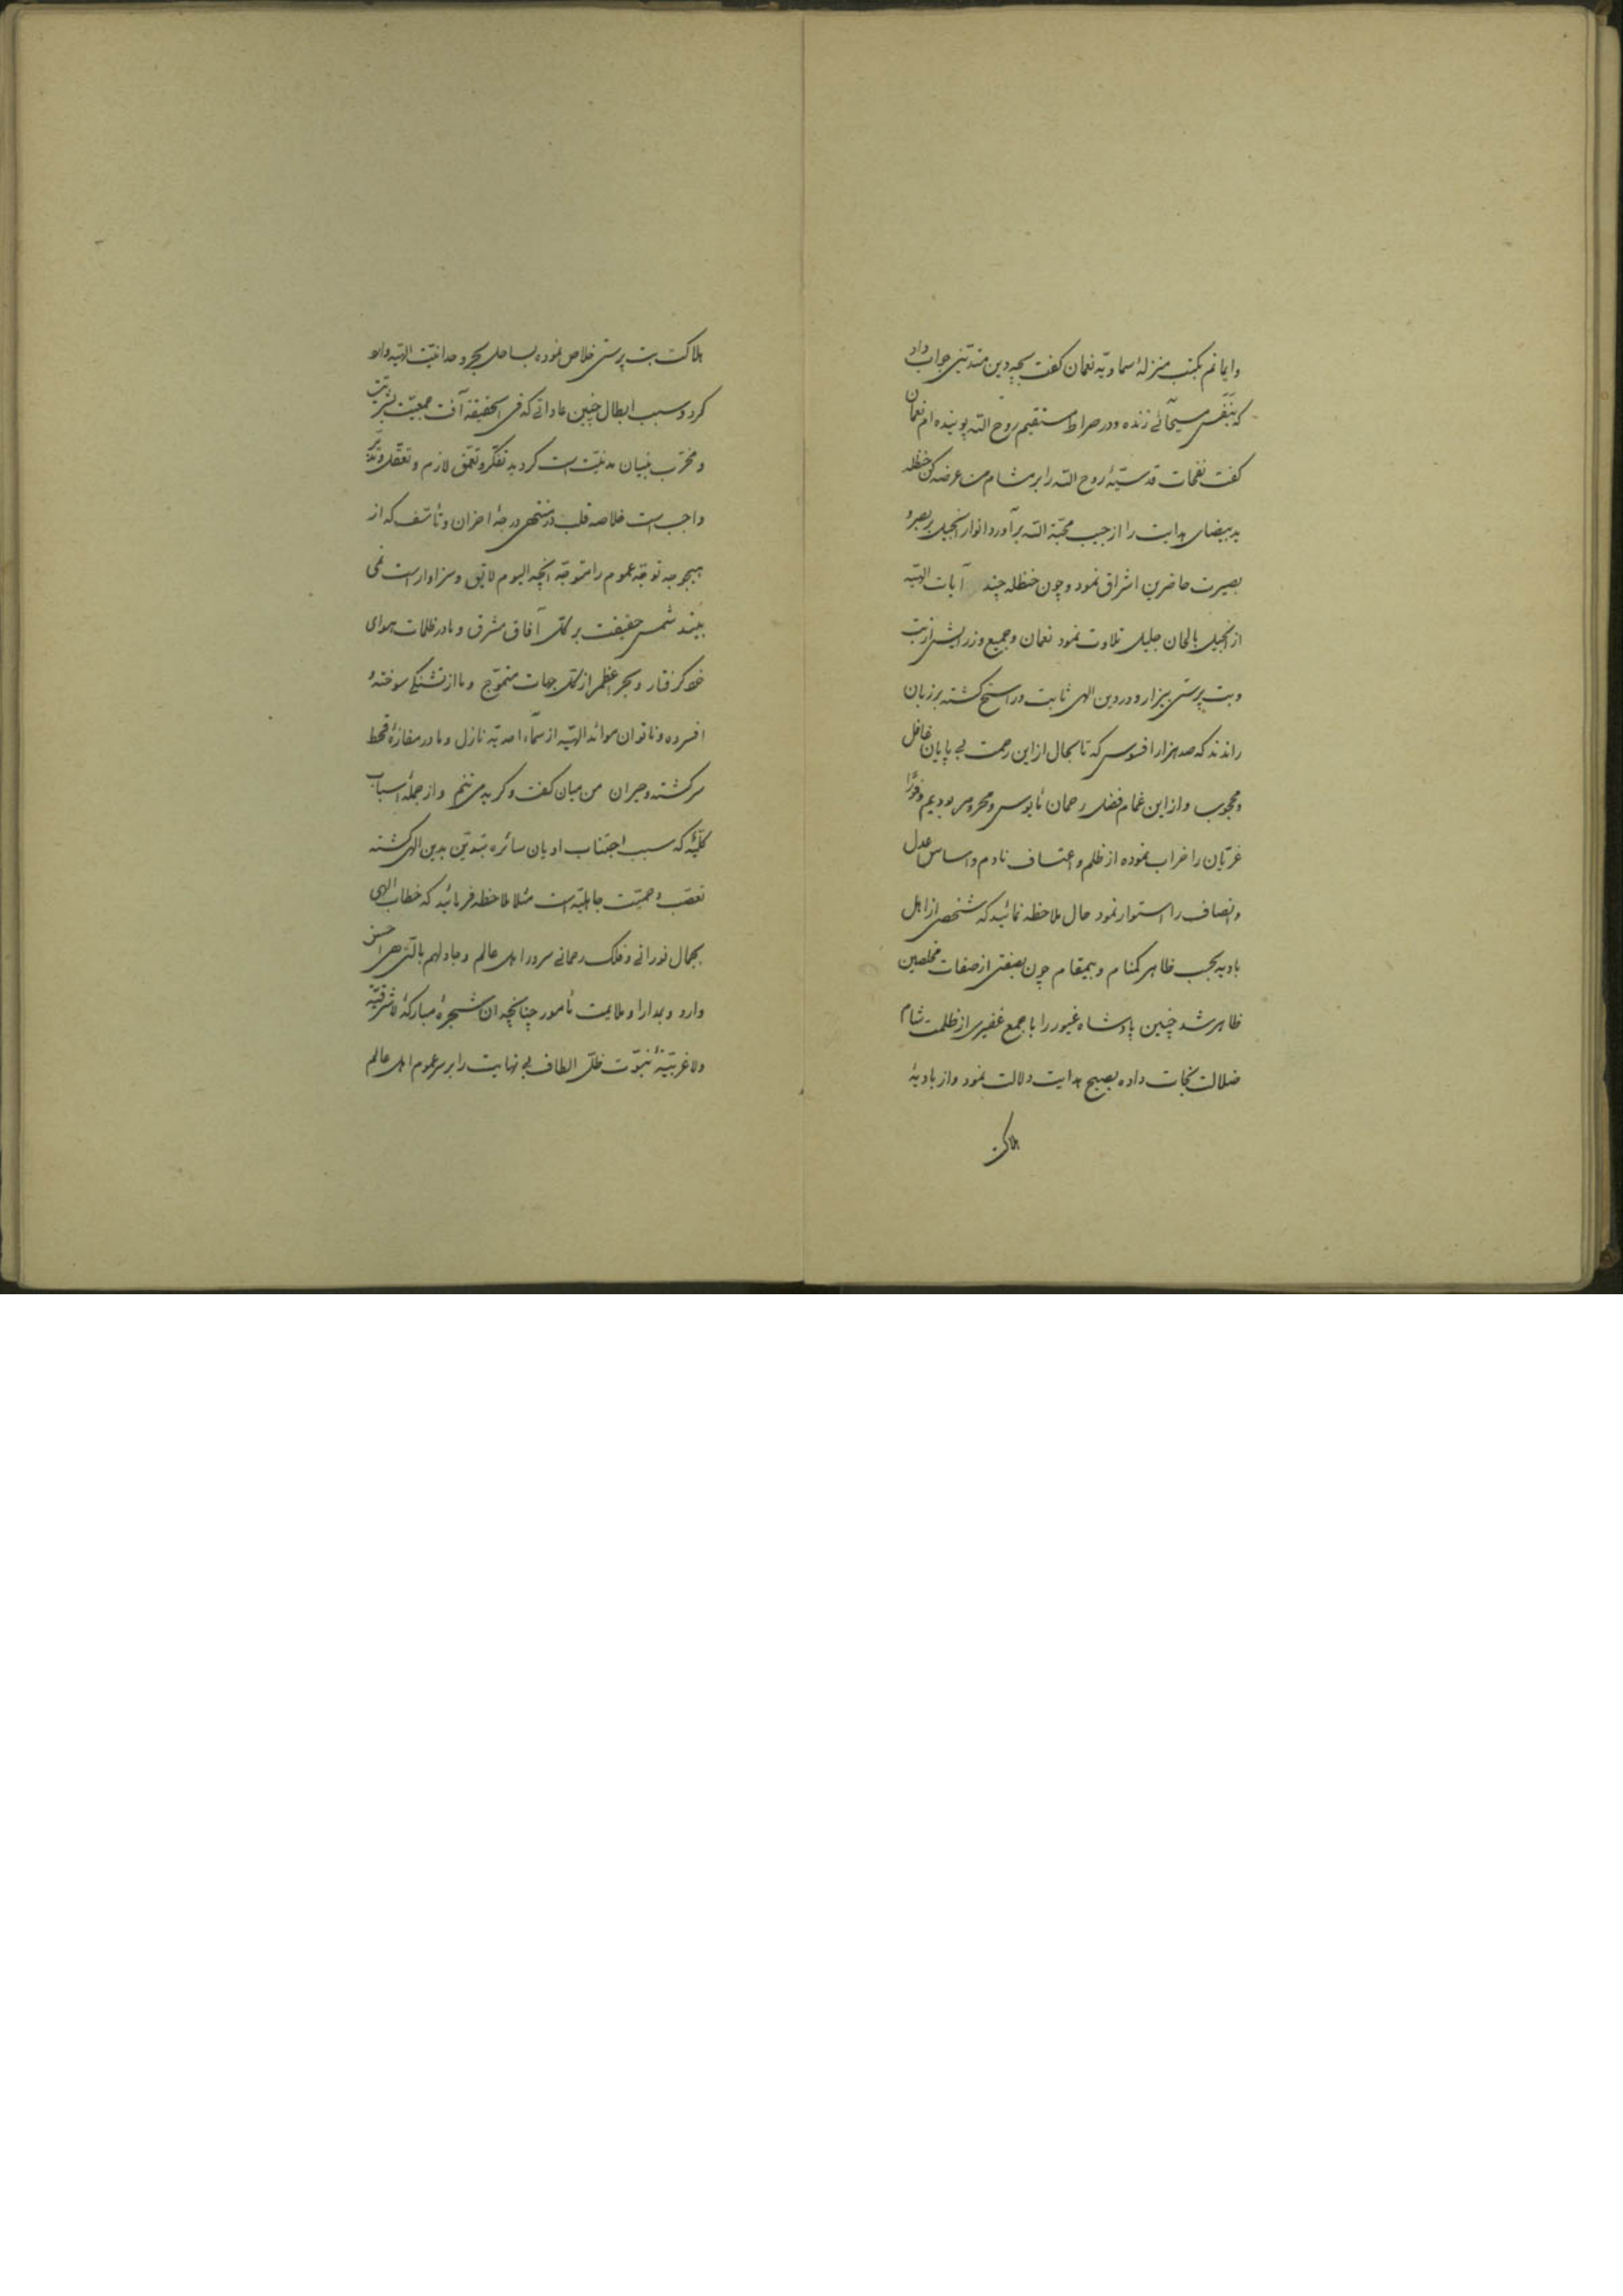 وایمانم بکتب منزلهٔ سماویّه نعمان کفت بچه دین متدیّنی جواب داد
که بنَفَس مسیحائی زنده و در صراط مستقیم روح اللّه پوینده ام نعمان
کفت نفحات قدسیّهٔ روح اللّه را بر مشام من عرضه کن حنظله
ید بیضای هدایت را از جیب محبّة اللّه برآورد و انوار انجیل بر بصر و
بصیرت حاضرین اشراق نمود و چون حنظله چند آیات الهیّه
از انجیل بالحان جلیل تلاوت نمود نعمان و جمیع وزرایش از بت
و بت پرستی بیزار و در دین الهی ثابت و راسخ کشته بر زبان
راندند که صد هزار افسوس که تا بحال از این رحمت بی پایان غافل
و محجوب و از این غمام فضل رحمان مأیوس و محروم بودیم و فورًا
غریّان را خراب نموده از ظلم و اعتساف نادم و اساس عدل
و انصاف را استوار نمود حال ملاحظه نمائید که شخصی از اهل
بادیه بحسب ظاهر کمنام و بیمقام چون بصفتی از صفات مخلصین
ظاهر شد چنین پادشاه غیور را با جمع غفیری از ظلمت شام
ضلالت نجات داده بصبح هدایت دلالت نمود و از بادیهٔ
هلاکت
هلاکت بت پرستی خلاص نموده بساحل بحر وحدانیّت الهیّه وارد
کرد و سبب ابطال چنین عاداتی که فی الحقیقه آفت جمعیّت بشریّت
و مخرّب بنیان مدنیّت است کردید تفکّر و تعمّق لازم و تعقّل و تدبّر
واجب است خلاصه قلب در منتهی درجهٔ احزان و تأسّف که از
هیچ وجه توجّه عموم را متوجّه آنچه الیوم لایق و سزاوار است نمی
بیند شمس حقیقت بر کلّ آفاق مشرق و ما در ظلمات هوای
خود کرفتار و بحر اعظم از کلّ جهات متموّج و ما از تشنکی سوخته و
افسرده و ناتوان موائد الهیّه از سماء احدیّه نازل و ما در مفازهٔ قحط
سرکشته و حیران من میان کفت و کریه می تنم و از جملهٔ اسباب
کلّیّه که سبب اجتناب ادیان سائره تبدیّن بدین الهی کشته
تعصّب و حمیّت جاهلیّه است مثلا ملاحظه فرمائید که خطاب الهی
بجمال نورانی و فلک رحمانی سرور اهل عالم و جادلهم بالّتی هی احسن
وارد و بمدارا و ملایمت مأمور چنانچه ان شجرهٔ مبارکهٔ لا شرقیّه
ولا غربیّهٔ نبوّت ظلّ الطاف بی نهایت را بر سر عموم اهل عالم